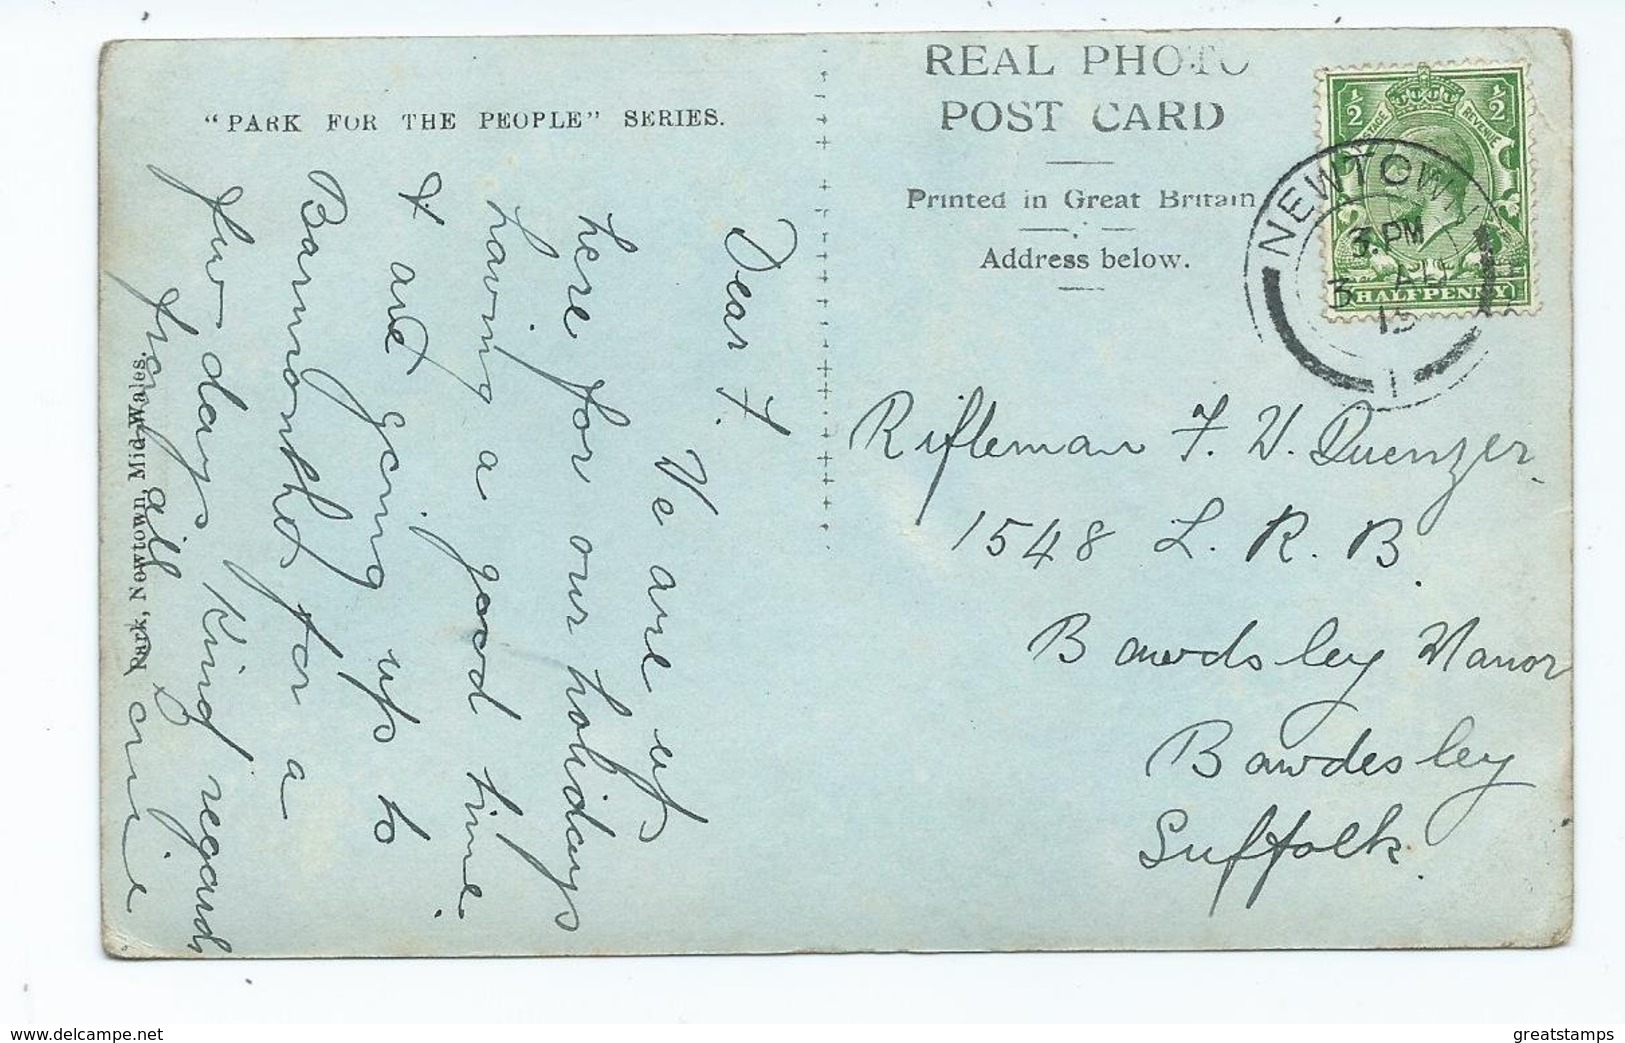 "PARK FOR THE PEOPLE" SERIES.
Dear F.
We are up
here for our holidays
having a good time.
& are going up to
Barmouth for a
few days Kind regards
from all
Park, Newtown, Mid-Wales.
REAL PHOTO
POST CARD
Printed in Great Britain
Address below.
½ ½
POSTAGE REVENUE
HALFPENNY
NEWTOWN
3. PM
3 AU
15
1
Rifleman F. W. Quenzer
1548 L. R. B.
Bawdsley Manor
Bawdesley
Suffolk.
www.delcampe.net
greatstamps